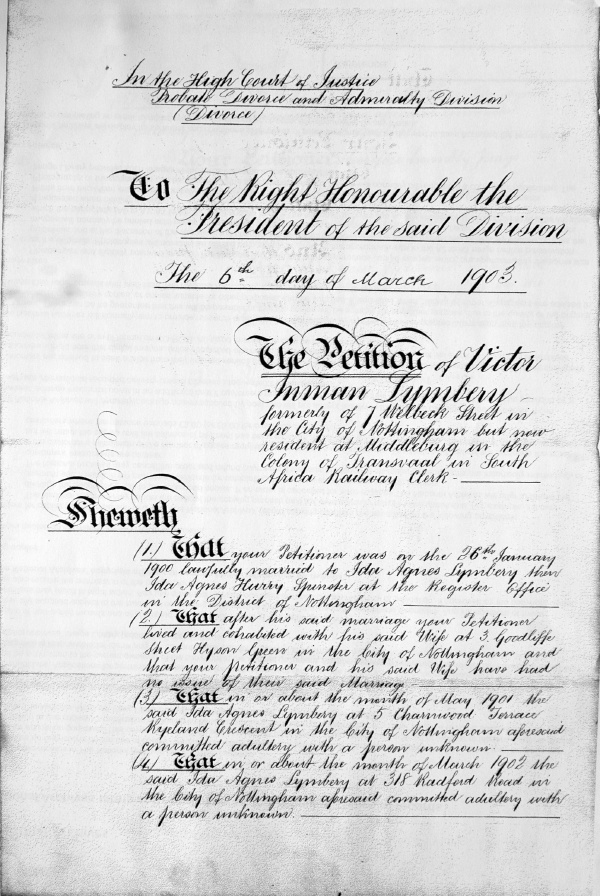 In the High Court of Justice
Probate Divorce and Admiralty Division
(Divorce)
To The Right Honourable the
President of the said Division
The 6th day of March 1903.
The Petition of Victor
Inman Lymbery
formerly of 7 Welbeck Street in
the City of Nottingham but now
resident at Middleburg in the
Colony of Transvaal in South
Africa Railway Clerk
Sheweth
(1.) That your Petitioner was on the 26th January
1900 lawfully married to Ida Agnes Lymbery then
Ida Agnes Hurry Spinster at the Register Office
in the District of Nottingham
(2.) That after his said marriage your Petitioner
lived and cohabited with his said Wife at 3 Goodliffe
Street Hyson Green in the City of Nottingham and
that your Petitioner and his said Wife have had
no issue of their said Marriage
(3.) That in or about the month of May 1901 the
said Ida Agnes Lymbery at 5 Charnwood Terrace
Ryeland Crescent in the City of Nottingham aforesaid
committed adultery with a person unknown.
(4.) That in or about the month of March 1902 the
said Ida Agnes Lymbery at 318 Radford Road in
the City of Nottingham aforesaid committed adultery with
a person unknown.